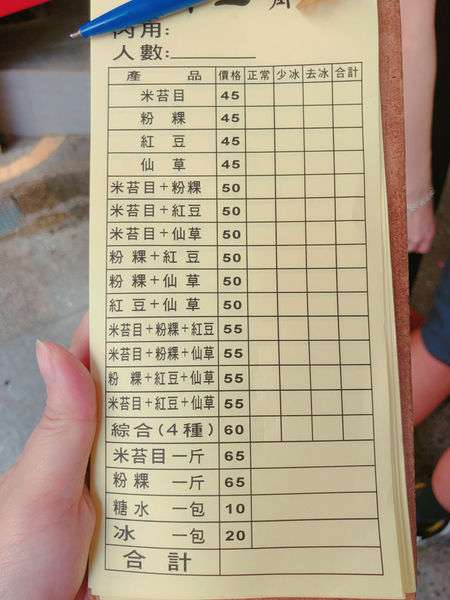 內用:
人數:
產品 價格 正常 少冰 去冰 合計
米苔目 45
粉粿 45
紅豆 45
仙草 45
米苔目+粉粿 50
米苔目+紅豆 50
米苔目+仙草 50
粉粿+紅豆 50
粉粿+仙草 50
紅豆+仙草 50
米苔目+粉粿+紅豆 55
米苔目+粉粿+仙草 55
粉粿+紅豆+仙草 55
米苔目+紅豆+仙草 55
綜合(4種) 60
米苔目一斤 65
粉粿一斤 65
糖水一包 10
冰一包 20
合計